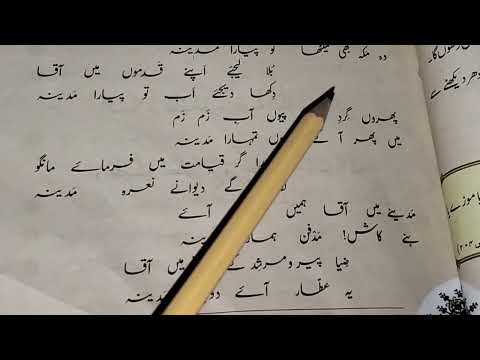 وہ مکہ بھی میٹھا تو پیارا مدینہ
بُلا لیجئے اَپنے قَدموں میں آقا
دِکھا دیجئے اَب تو پیارا مَدینہ
پھروں گِرد پیوں آب زَم زَم
میں پھر آ کے تمہارا مَدینہ
گر قیامت میں فرمائے مانگو
گے دیوانے نعرہ مَدینہ
مَدینے میں آقا ہمیں آئے
بنے کاش! مَدفن ہمارا مدینہ
ضِیا پیر و مرشِد کے میں آقا
یہ عطّار آئے مدینہ
دھر دیکھئے